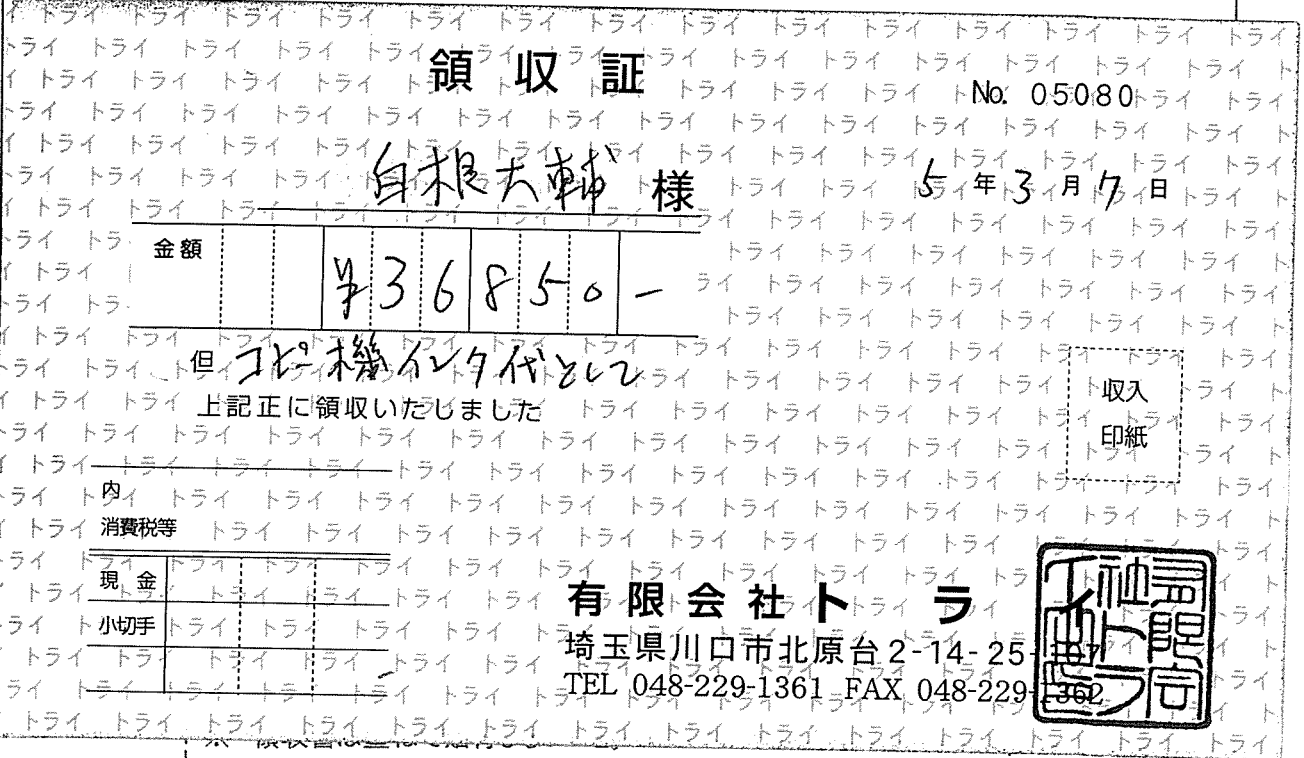 領収証
No. 05080
白根大輔 様
5年3月7日
金額 ¥36850-
但 コピー機インク代として
上記正に領収いたしました
収入
印紙
内
消費税等
現金
小切手
有限会社トライ
埼玉県川口市北原台2-14-25-107
TEL 048-229-1361 FAX 048-229-1362